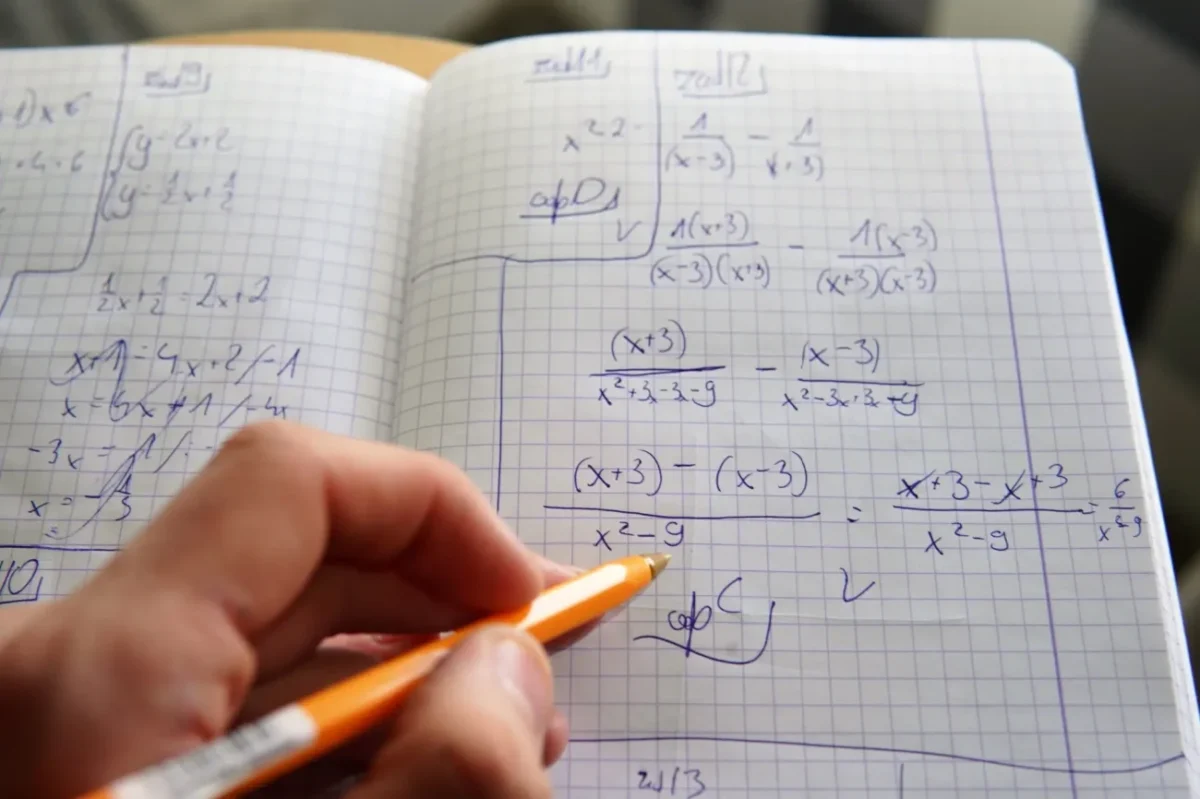 zad 9
+1)x
+4+6
y=2x+2
y=1/2x+1/2
1/2x+1/2=2x+2
x+1=4x+2/-1
-3x=
10
zad 11
x²-2
odp D
zad 12
1/(x-3) - 1/(x+3)
1(x+3)/(x-3)(x+3) - 1(x-3)/(x+3)(x-3)
(x+3)/x²+3x-3x-9 - (x-3)/x²-3x+3x-9
(x+3)-(x-3)/x²-9 = x+3-x+3/x²-9 = 6/x²-9
odp C
zad 13